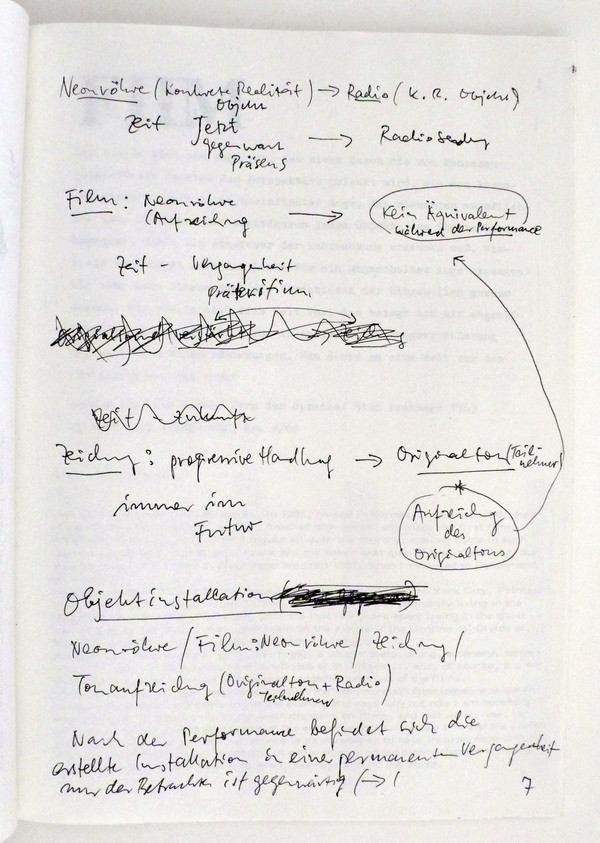 Neonröhre (Konkrete Realität) → Radio (K. R. Objekt)
Objekt
Zeit Jetzt
gegenwart → Radiosendung
Präsens
Film: Neonröhre → Kein Äquivalent
(Aufzeichnung während der Performance
Zeit - Vergangenheit
Präteritum
Zeit - Zukunft
Zeichnung: progressive Handlung → Originalton (Teil-
nehmer)
immer im
Futur
*
Aufzeichnung
des
Originaltons
Objektinstallation
Neonröhre / Film: Neonröhre / Zeichnung /
Tonaufzeichnung (Originalton + Radio)
Teilnehmer
Nach der Performance befindet sich die
erstellte Installation in einer permanenten Vergangenheit
nur der Betrachter ist gegenwärtig (→)
7